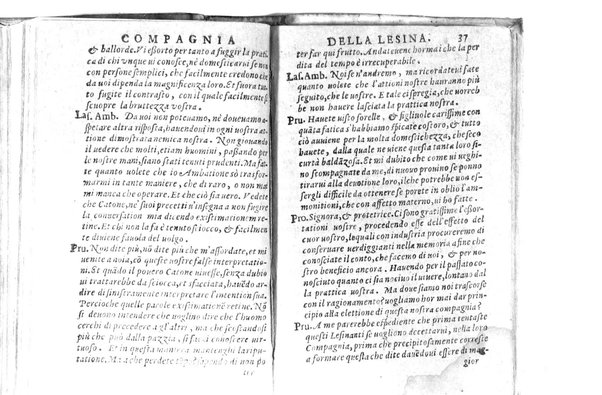 COMPAGNIA
& ballorde. Vi esorto per tanto a fuggir la prati
ca di chi vnque vi conosce, nè domesticarui se non
con persone semplici, che facilmente credono che
da voi dipenda la magnificenza loro. Et sia tutto
fugite il contrasto, con il quale facilmente si
scuopre la bruttezza vostra.
Las. Amb. Da voi non poteuamo, nè doueuamo a-
spettare altra risposta, hauendoui in ogni nostra at
tione dimostrata nemica nostra. Non giouando
il vedere che molti, et infiniti huomini, passando per
le nostre mani, siano stati tenuti prudenti. Ma fa-
te quanto volete che io Ambatione sò trasfor-
marmi in tante maniere, che di raro, o non mai
mi manca che operare. Et che ciò sia vero. Ve-
dete che Catone, nè suoi precetti n'insegna a non fugire
la conuersation mia dicendo existimationem re-
tine. Et chi non la fà è tenuto sciocco, & facilmen-
te diuiene fauola del volgo.
Pru. Non dite più, nò dite più che m'assordate, et mi
uenite a noia, cō queste nostre false interpretatio-
ni. Et quādo il pouero Catone viuesse, senza dubio
vi trattarebbe da sciocca, et sfacciata, hauēdo ar-
dire di sinistramente interpretare l'intention sua.
Percioche quelle parole existimationē retine. Nō
si deuono intendere che uoglino dire che l'huomo
cerchi di precedere a gl'altri, ma che scostandosi
più che può dalla pazzia, si facci conoscere vir-
tuoso. Et in questa maniera mantenghi la ripu-
tatione. Ma a che perdete tempo spendo di non po
DELLA LESINA. 37
ter far qui frutto. Andateuene hormai che la per
dita del tempo è irrecuperabile.
Las. Amb. Noi se n'andremo, ma ricordateui fate
quanto volete che l'attioni nostre hauranno più
seguito, che le nostre. E tale ci spregia, che vorreb
be non hauere lasciata la prattica nostra.
Pru. Hauete uisto sorelle, & figliuole carissime con
quāta fatica s'habbiamo spiccate costoro, & tutto
ciò auuiene per la molta domestichezza, che seco
hauete, dalla quale ne viene in questa tanta loro si
curtà baldāzosa. Et mi dubito che come si veghi-
no scompagnate da me, di nuouo pronino se ponno
tirarui alla deuotione loro, il che potrebbe non es-
sergli difficile da ottenere se porete in oblio l'am-
monitioni, che con affetto materno, ui ho fatte.
Pro. Signora, & protetrice. Ci sono gratissime l'essor-
tationi nostre, procedendo esse dell'effetto del
cuor nostro, lequali con industria procureremo di
conseruare verdiggianti nella memoria afine che
conosciate il conto, che facemo di uoi, & per no-
stro beneficio ancora. Hauendo per il passato co-
nosciuto quanto ci sia nociuo il uiuere, lontano dal
la prattica uostra. Ma doue siamo noi trascorse
con il ragionamento? vogliamo hor mai dar prin-
cipio alla elettione di questa nostra compagnia?
Pru. A me parerebbe espediente che prima tentaste
questi Lesinanti se vogliono accettarui, nella loro
Compagnia, prima che precipitosamente correste
a formare questa che dite dauēdoui essere di mag-
gior